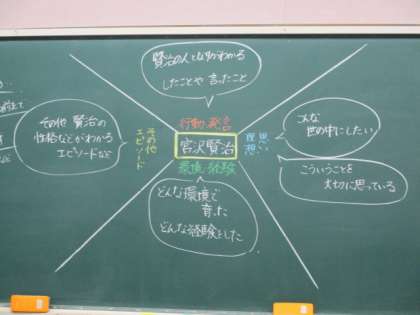 賢治の人となりがわかる
したことや 言ったこと
行動・発言
その他 賢治の
性格などがわかる
エピソードなど
その他
エピソード
宮沢賢治
思い
理想
こんな
世の中にしたい
こういうことを
大切に思っている
環境・経験
どんな環境で
育った
どんな経験をした